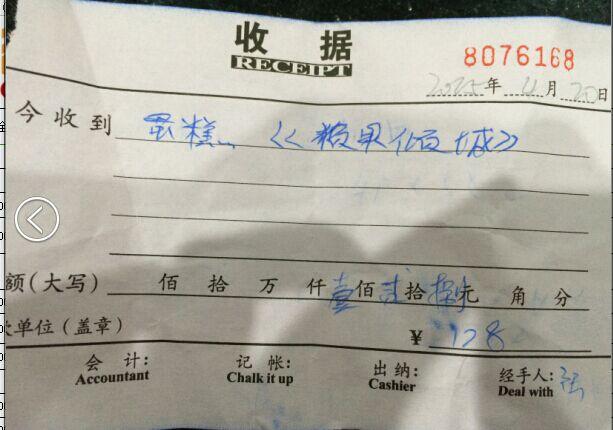 收 据
RECEIPT
8076168
年 月 20日
今收到 蛋糕 《糖果倾城》
额(大写) 佰 拾 万 仟 壹 佰 贰 拾 捌 元 角 分
单位(盖章) ¥ 128
会 计: 记 帐: 出 纳: 经手人:
Accountant Chalk it up Cashier Deal with